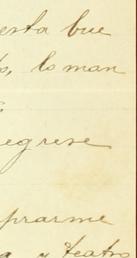 esta bue
to, lo man
egrese
prarme
a y teatro